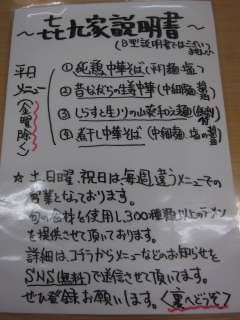 ～七七七九家説明書～
平日
メニュー
(金曜除く)
①純鶏中華そば(平打麺・塩)
②昔ながらの生姜中華(中細麺・醤油)
③しらすと生ノリの山葵和え麺
④煮干し中華そば(中細麺、塩or醤油)
☆土、日曜、祝日は毎週違うメニューでの
営業となっております。
旬の食材を使用し300種類以上のラーメン
を提供させて頂いております。
詳細はコチラからメニューなどのお知らせを
SNS(無料)で送信させて頂いてます。
ぜひ登録お願いします。<裏へどうぞ>